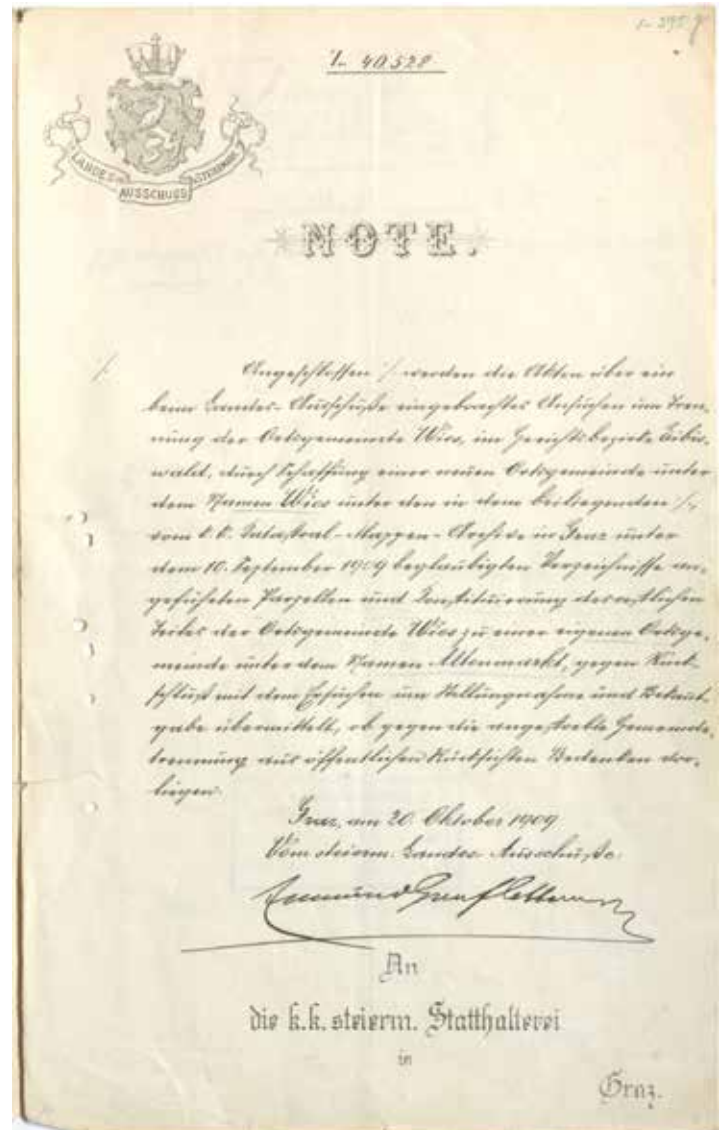 Z. 40.528
LANDES-
AUSSCHUSS
STEIERMARK
NOTE.
Angeschlossen ·/. werden die Akten über ein
beim Landes-Ausschuße eingebrachtes Ansuchen um Tren-
nung der Ortsgemeinde Wies, im Gerichtsbezirke Eibis-
wald, durch Schaffung einer neuen Ortsgemeinde unter
dem Namen Wies unter den in dem beiliegenden ·/.
vom k. k. Katastral-Mappen-Archive in Graz unter
dem 10. September 1909 beglaubigten Verzeichnisse an-
geführten Parzellen und Konstituierung des restlichen
Teiles der Ortsgemeinde Wies zu einer eigenen Ortsge-
meinde unter dem Namen Altenmarkt, gegen Rück-
schluß mit dem Ersuchen um Stellungnahme und Bekannt-
gabe übermittelt, ob gegen die angestrebte Gemeinde-
trennung aus öffentlichen Rücksichten Bedenken vor-
liegen.
Graz, am 20. Oktober 1909.
Vom steierm. Landes-Ausschuße:
Edmund Graf
An
die k.k. steierm. Statthalterei
in
Graz.